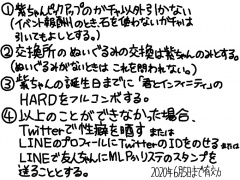 ①紫ちゃんピックアップのガチャ以外引かない
(イベント報酬のとき、石を使わないガチャは
引いてもよしとする。)
②交換所のぬいぐるみの交換は紫ちゃんのみとする。
(ぬいぐるみがないときは これを問われない。)
③紫ちゃんの誕生日までに「君とインフィニティ」の
HARDをフルコンボする。
④以上のことができなかった場合、
Twitterで性癖を晒す または
LINEのプロフィールにTwitterのIDをのせる または
LINEで友人ちゃんにMLPohリステのスタンプを
送ることとする。
2020年6月5日まで有効